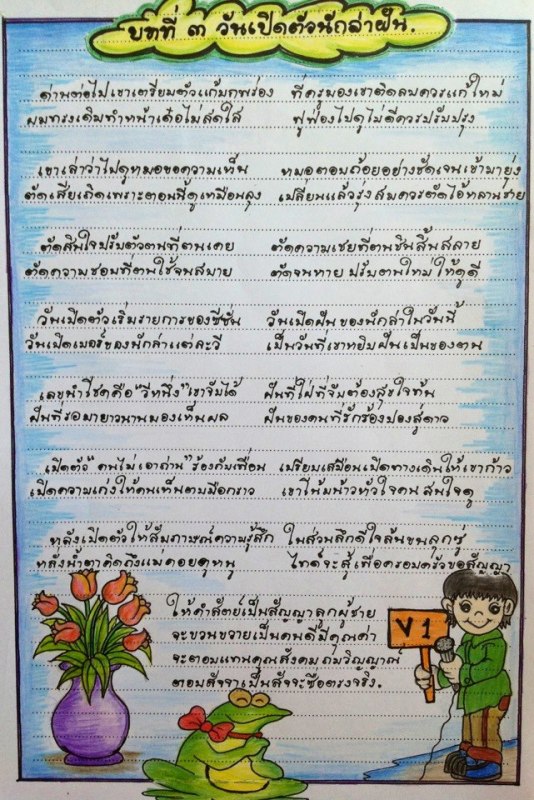 บทที่ ๓ วันเปิดตัวนักล่าฝัน.
ด่านต่อไปเขาเตรียมตัวแก้บกพร่อง ที่ครูมองเขาติดลบควรแก้ใหม่
ผมทรงเดิมทำหน้าเด๋อไม่สดใส ฟูฟ่องไปดูไม่ดีควรปรับปรุง
เขาเล่าว่าไปดูหมอขอความเห็น หมอตอบถ้อยอย่างชัดเจนเข้ามายุ่ง
ตัดเสียเถิดเพราะตอนนี้ดูเหมือนลุง เปลี่ยนแล้วรุ่งสมควรตัดไอ้หลานชาย
ตัดสินใจปรับตัวตนที่ตนเคย ตัดความเชยที่ตนชินสิ้นสลาย
ตัดความชอบที่ตนใช้จนสบาย ตัดจนหาย ปรับตนใหม่ ให้ดูดี
วันเปิดตัวเริ่มรายการของซีซั่น วันเปิดฝันของนักล่าในวันนี้
วันเปิดเบอร์ของนักล่าแต่ละวี เป็นวันที่เขาหยิบฝันเป็นของตน
เลขนำโชคคือ "วีหนึ่ง" เขาจับได้ ฝันที่ใฝ่ที่จับต้องสุขใจท้น
ฝันที่รอมายาวนานมองเห็นผล ฝันของคนที่รักร้องปองสู่ดาว
เปิดตัว "คนไม่เอาถ่าน" ร้องกับเพื่อน เปรียบเสมือนเปิดทางเดินให้เขาก้าว
เปิดความเก่งให้คนเห็นตบมือกราว เขาโน้มน้าวหัวใจคน สนใจดู
หลังเปิดตัวให้สัมภาษณ์ความรู้สึก ในส่วนลึกดีใจล้นขนลุกซู่
หลั่งน้ำตาคิดถึงแม่คอยดูหนู ไทด์จะสู้เพื่อครอบครัวขอสัญญา
ให้คำสัตย์เป็นสัญญาลูกผู้ชาย
จะขวนขวายเป็นคนดีมีคุณค่า
จะตอบแทนคุณสังคม
ตอบสัจจาเป็นสัจจะซื่อตรงจริง.
V 1